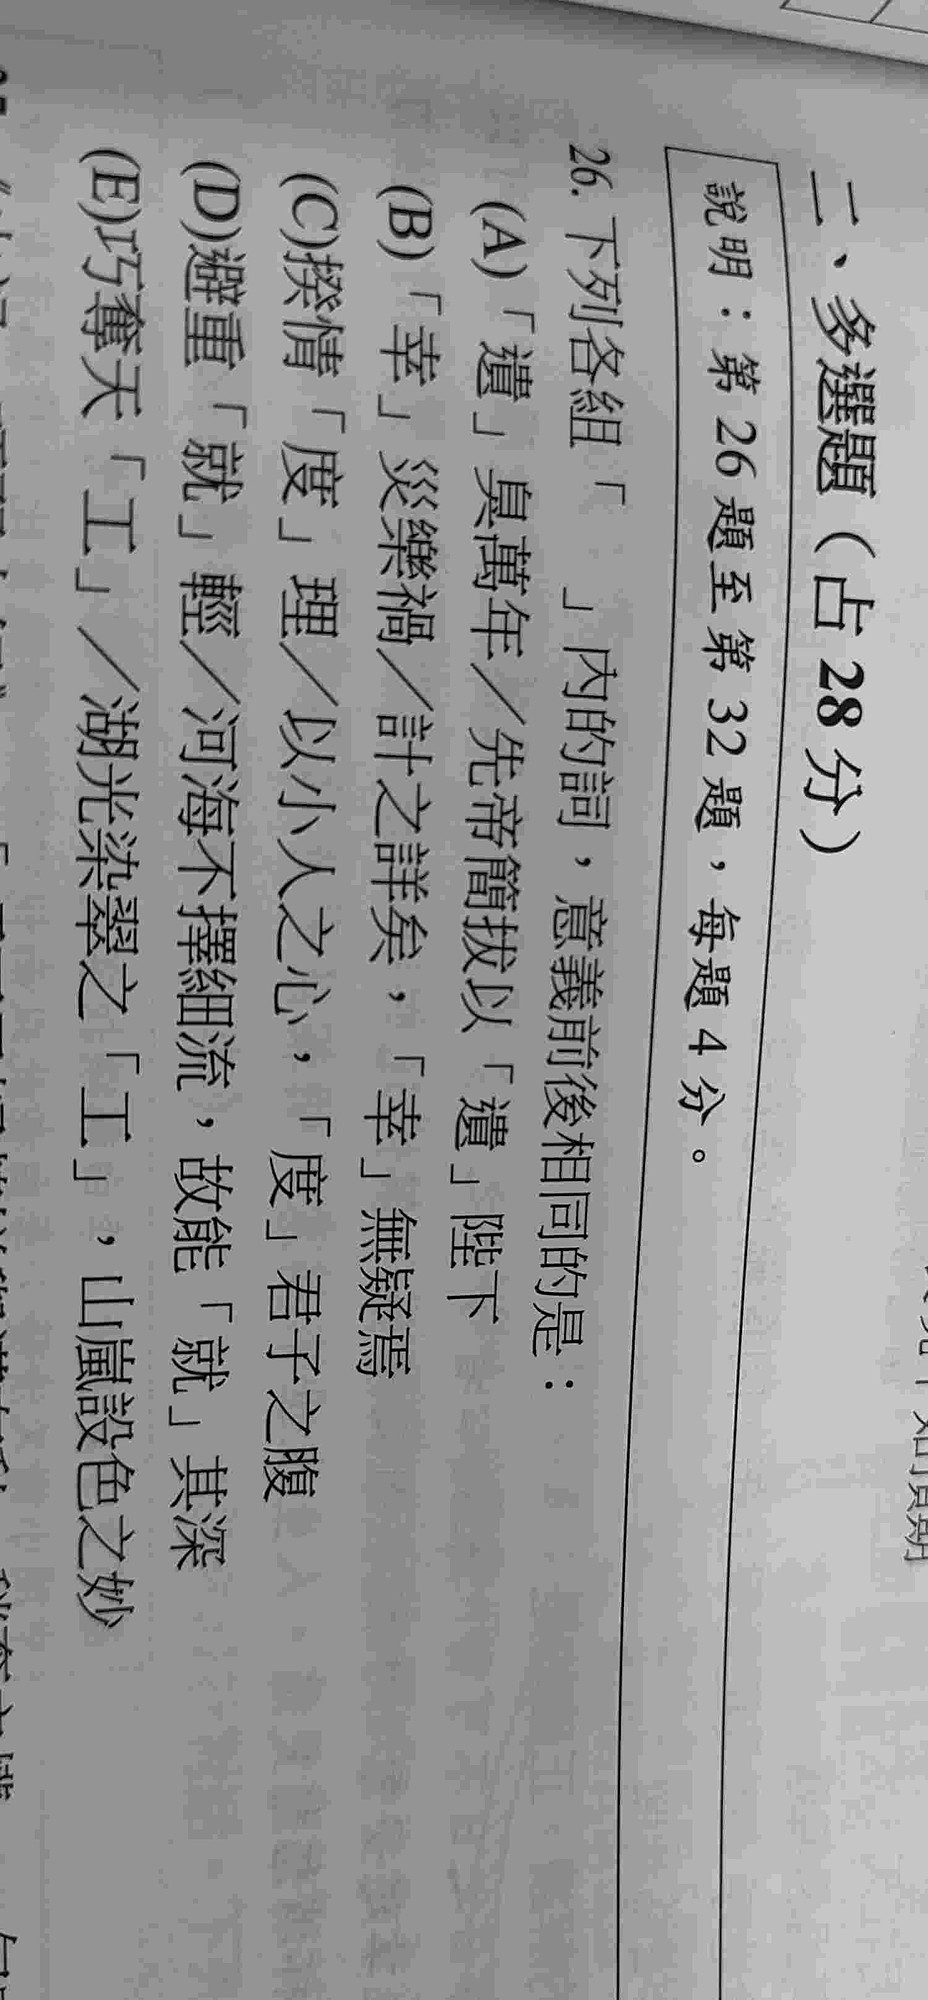 二、多選題（占 28 分）
說明：第 26 題至第 32 題，每題 4 分。
26. 下列各組「　　」內的詞，意義前後相同的是：
(A)「遺」臭萬年／先帝簡拔以「遺」陛下
(B)「幸」災樂禍／計之詳矣，「幸」無疑焉
(C)揆情「度」理／以小人之心，「度」君子之腹
(D)避重「就」輕／河海不擇細流，故能「就」其深
(E)巧奪天「工」／湖光染翠之「工」，山嵐設色之妙